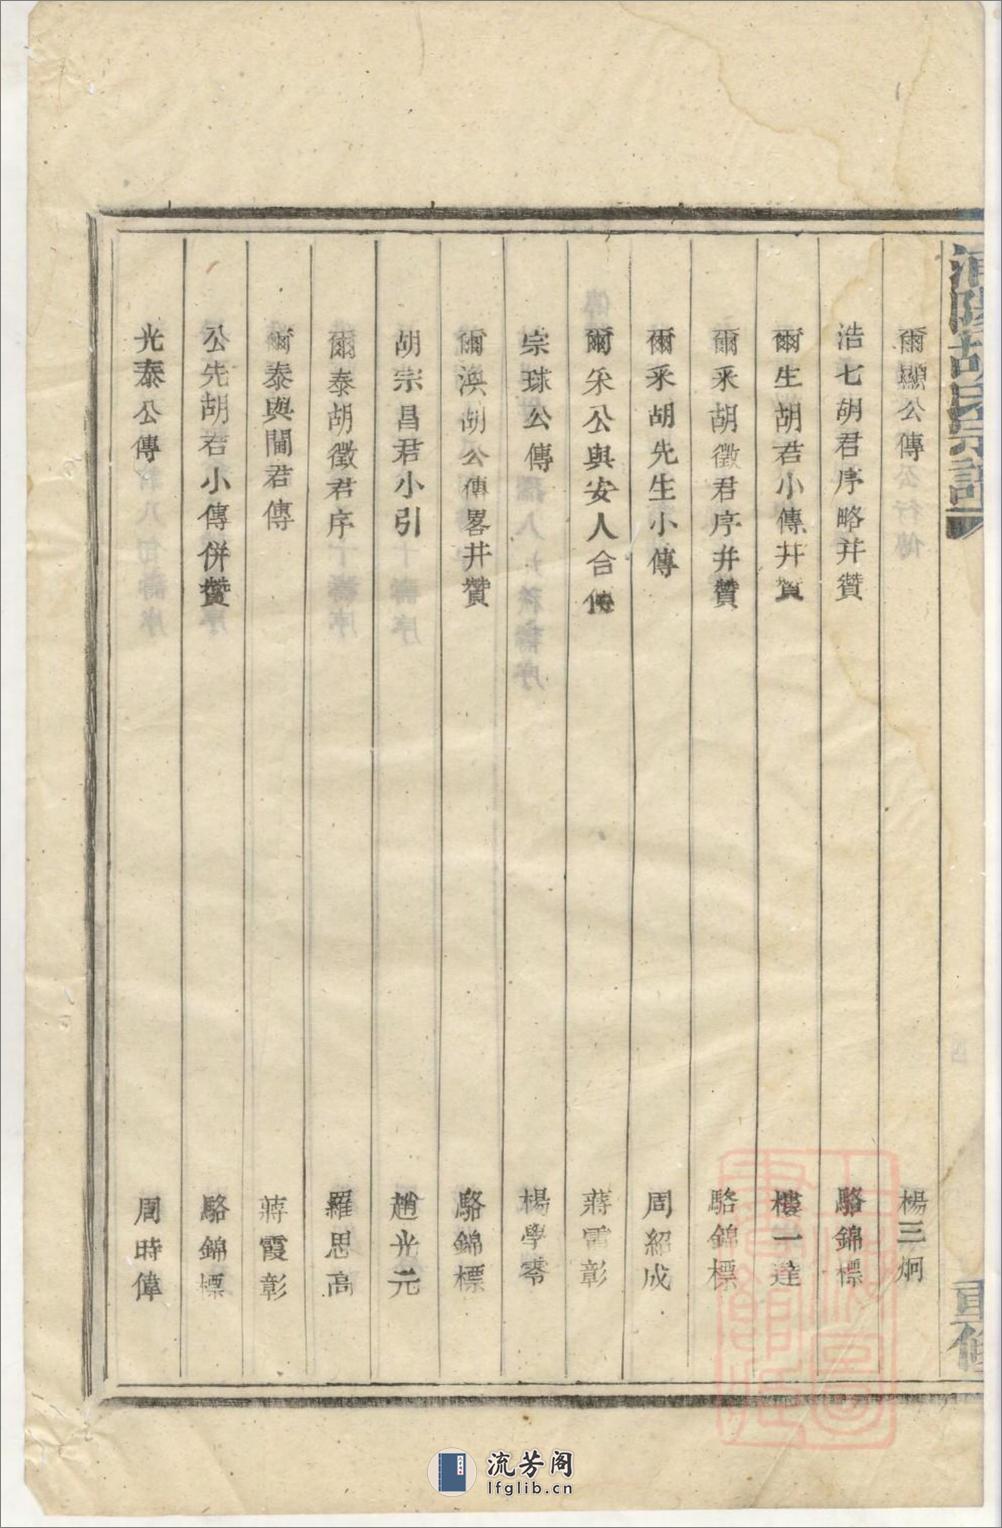 胡氏宗譜
爾顯公傳 楊三炯
浩七胡君序略并贊 駱錦標
爾生胡君小傳并贊 樓一達
爾采胡徵君序并贊 駱錦標
爾采胡先生小傳 周紹成
爾采公與安人合傳 蔣雷彰
宗球公傳 楊學零
爾濱胡公傳畧并贊 駱錦標
胡宗昌君小引 趙光元
爾泰胡徵君序 羅思高
爾泰與閫君傳 蔣霞彰
公先胡君小傳併贊 駱錦標
光泰公傳 周時偉
重修
流芳阁
lfglib.cn